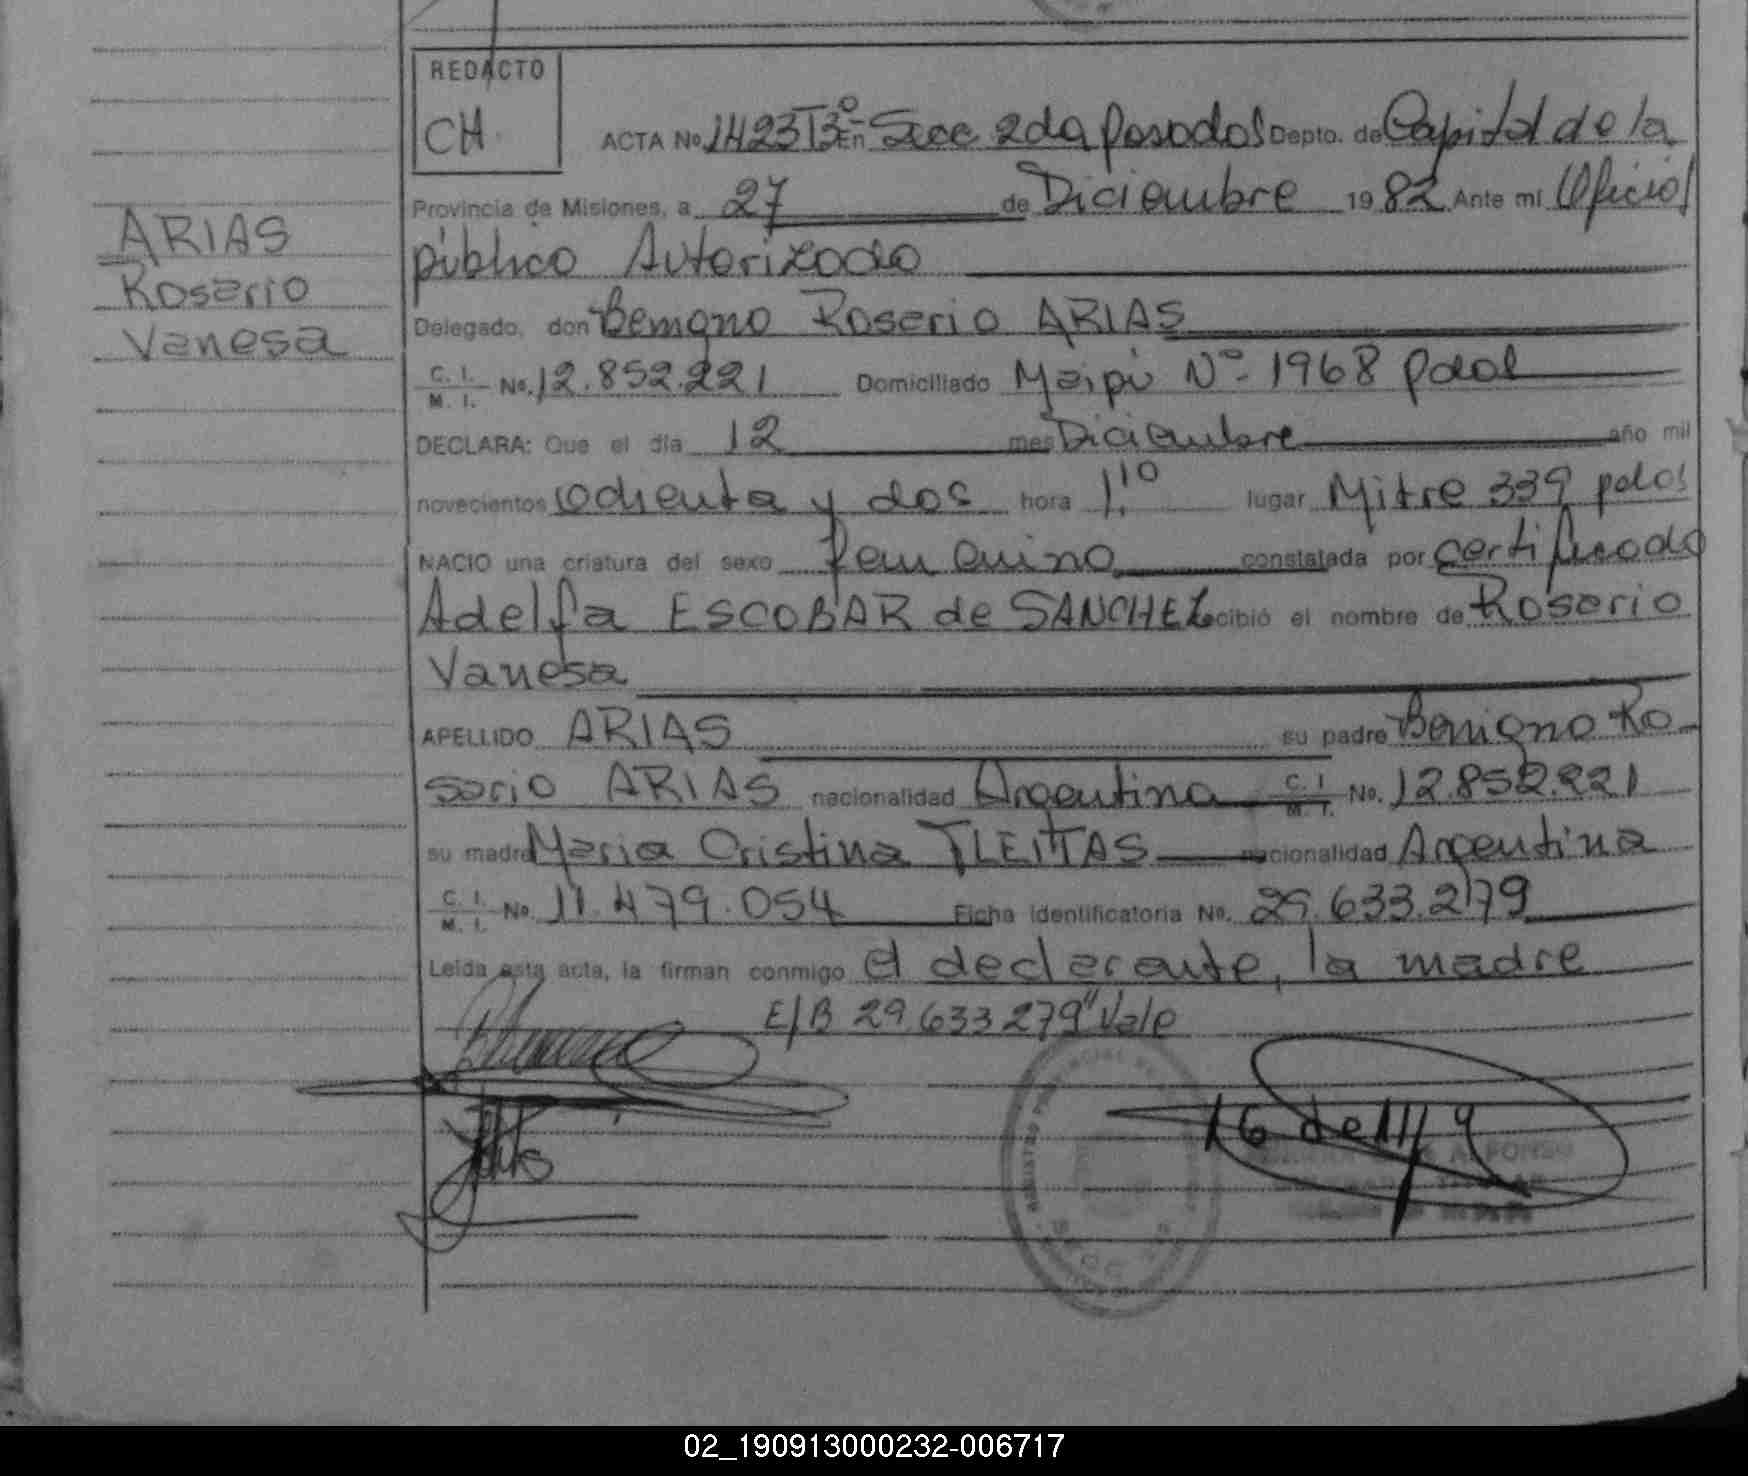 REDACTO
CH
ACTA No. 1423 Tº3 En Secc 2da Posadas Depto. de Capital de la
Provincia de Misiones, a 27 de Diciembre 1982 Ante mí Oficial
público Autorizado
ARIAS
Rosario
Vanesa
Delegado, don Benigno Rosario ARIAS
C. I. M. I. No. 12.852.221 Domiciliado Maipú Nº 1968 pdas
DECLARA: Que el día 12 mes Diciembre año mil
novecientos ochenta y dos hora 1.10 lugar Mitre 339 pdas
NACIO una criatura del sexo femenino constatada por certificado
Adelfa ESCOBAR de SANCHEZ cibió el nombre de Rosario
Vanesa
APELLIDO ARIAS su padre Benigno Ro-
sario ARIAS nacionalidad Argentina C. I. M. I. No. 12.852.221
su madre Maria Cristina FLEITAS nacionalidad Argentina
C. I. M. I. No. 11.479.054 Ficha Identificatoria No. 29.633.279
Leída esta acta, la firman conmigo el declarante, la madre
E/B 29.633.279" Vale
16 de
ALFONSO
02_190913000232-006717